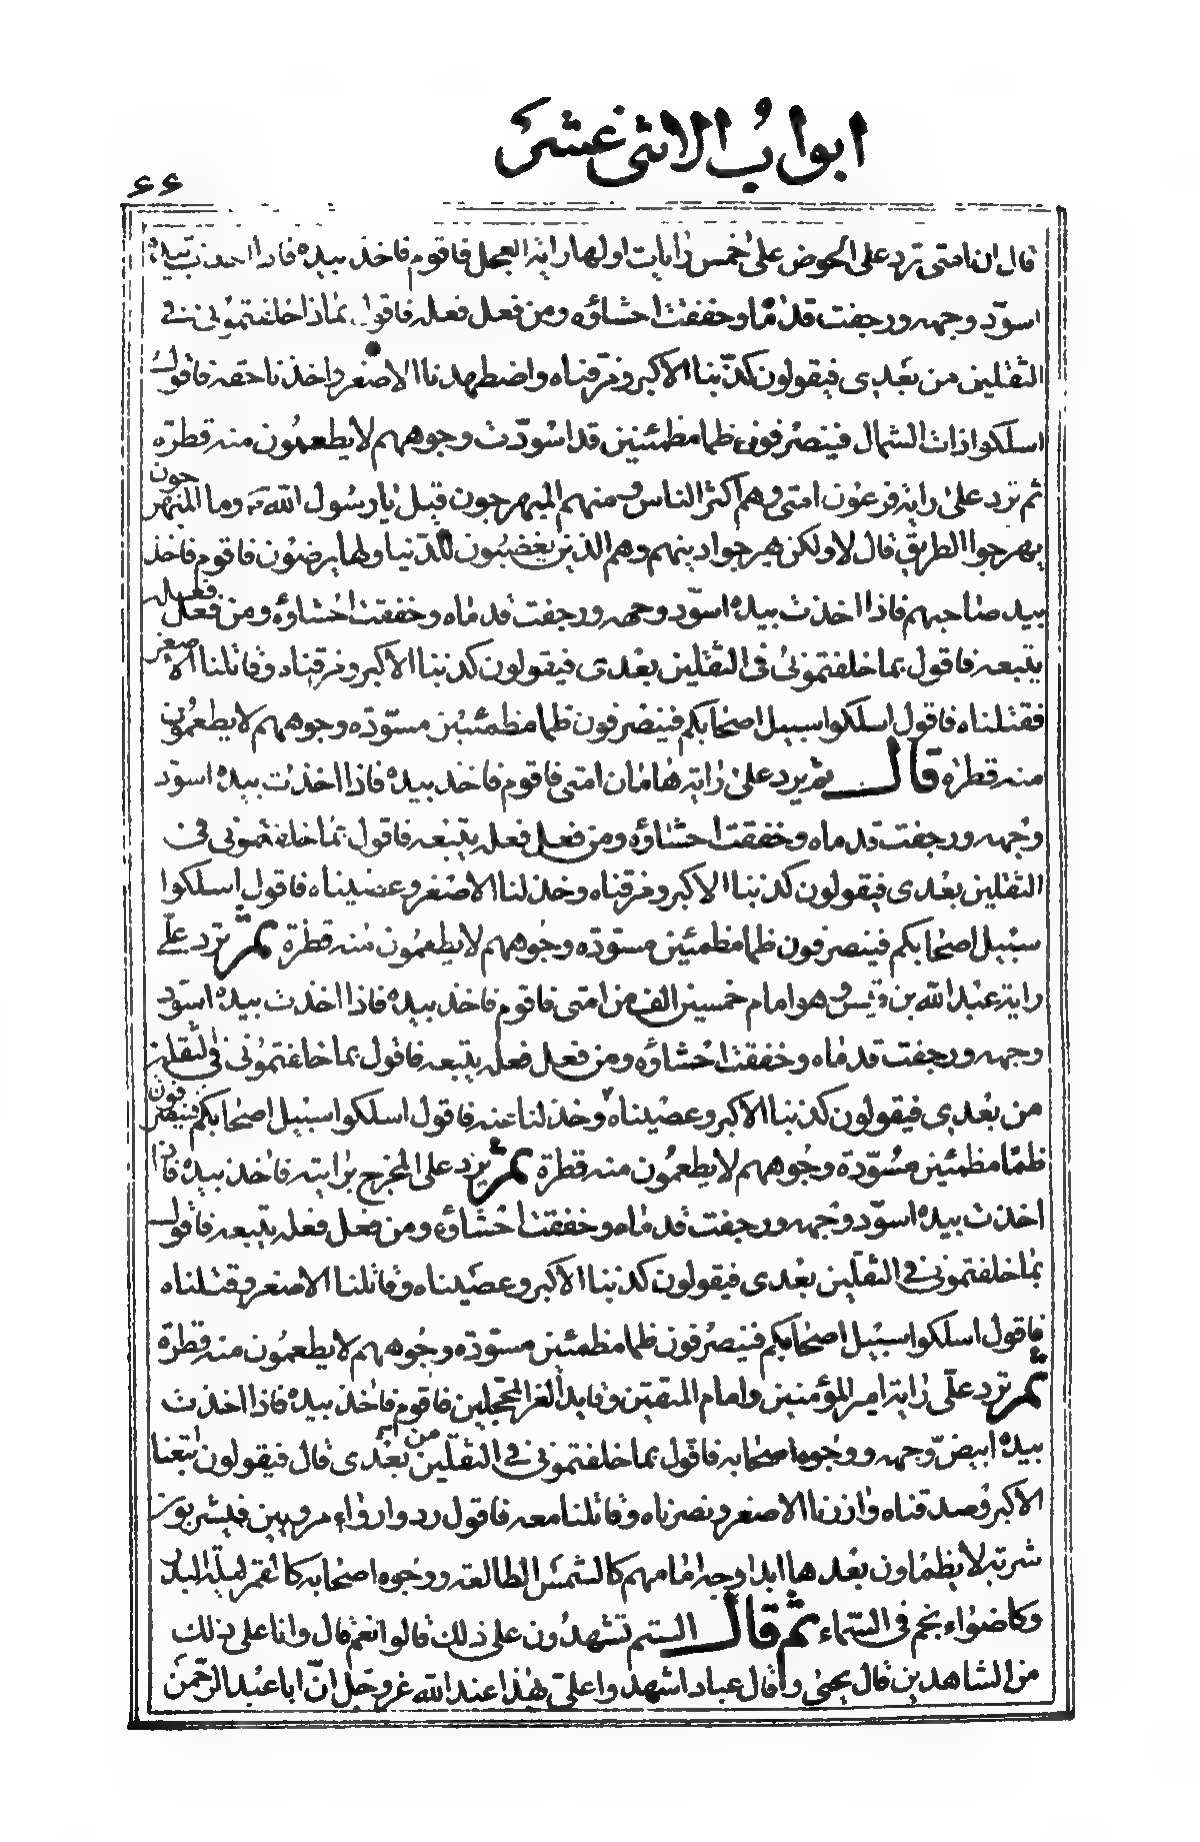 ابواب الاثنی عشر
٤٤
قال ان امتی ترد علی الحوض علی خمس رایات اولها رایة العجل فاقوم فاخذ بیده فاذا اخذت بیده
اسوّد وجهه ورجفت قدماه وخفقت احشاؤه ومن فعل فعله فاقول بماذا خلفتمونی فی
الثقلین من بعدی فیقولون کذّبنا الاکبر ومزقناه واضطهدنا الاصغر واخذنا حقه فاقول
اسلکوا ذات الشمال فینصرفون ظما مظمئین قد اسودّت وجوههم لا یطعمون منه قطرة
ثم ترد علیّ رایة فرعون امتی وهم اکثر الناس ومنهم المبهرجون قیل یا رسول الله ص وما المبهرجون
بهرجوا الطریق قال لا ولکن بهرجوا دینهم وهم الذین یغضبون للدّنیا ولها یرضون فاقوم فاخذ
بید صاحبهم فاذا اخذت بیده اسوّد وجهه ورجفت قدماه وخفقت احشاؤه ومن فعل فعله
یتبعه فاقول بما خلفتمونی فی الثقلین بعدی فیقولون کذبنا الاکبر ومزقناه وقاتلنا الاصغر
فقتلناه فاقول اسلکوا سبیل اصحابکم فینصرفون ظما مظمئین مسوّدة وجوههم لا یطعمون
منه قطرة قال ثم یرد علیّ رایة هامان امتی فاقوم فاخذ بیده فاذا اخذت بیده اسوّد
وجهه ورجفت قدماه وخفقت احشاؤه ومن فعل فعله یتبعه فاقول بما خلفتمونی فی
الثقلین بعدی فیقولون کذبنا الاکبر ومزقناه وخذلنا الاصغر وعصیناه فاقول اسلکوا
سبیل اصحابکم فینصرفون ظما مظمئین مسوّدة وجوههم لا یطعمون منه قطرة ثمّ ترد علیّ
رایة عبد الله بن قیس وهو امام خمسین الف من امتی فاقوم فاخذ بیده فاذا اخذت بیده اسوّد
وجهه ورجفت قدماه وخفقت احشاؤه ومن فعل فعله یتبعه فاقول بما خلفتمونی فی الثقلین
من بعدی فیقولون کذبنا الاکبر وعصیناه وخذلنا عنه فاقول اسلکوا سبیل اصحابکم فینصرفون
ظمًا مظمئین مسوّدة وجوههم لا یطعمون منه قطرة ثمّ یرد علی المخرج برایته فاخذ بیده فاذا
اخذت بیده اسوّد وجهه ورجفت قدماه وخفقت احشاؤه ومن فعل فعله یتبعه فاقول
بما خلفتمونی فی الثقلین بعدی فیقولون کذبنا الاکبر وعصیناه وقاتلنا الاصغر وقتلناه
فاقول اسلکوا سبیل اصحابکم فینصرفون ظما مظمئین مسوّدة وجوههم لا یطعمون منه قطرة
ثمّ ترد علیّ رایة امیر المؤمنین وامام المتقین وقاید الغر المحجلین فاقوم فاخذ بیده فاذا اخذت
بیده ابیضّ وجهه ووجوه اصحابه فاقول بما خلفتمونی فی الثقلین من بعدی قال فیقولون اتبعنا
الاکبر وصدقناه وازرنا الاصغر ونصرناه وقاتلنا معه فاقول ردوا رواء مرویین فیشربون
شربة لا یظماون بعدها ابدا وجه امامهم کالشمس الطالعة ووجوه اصحابه کالقمر لیلة البدر
وکاضواء نجم فی السّماء ثمّ قال الستم تشهدون علی ذلک قالوا نعم قال وانا علی ذلک
من الشاهدین قال یحیی وقال عباد اشهد وا علیّ بهذا عند الله عز وجل انّ ابا عبد الرحمن